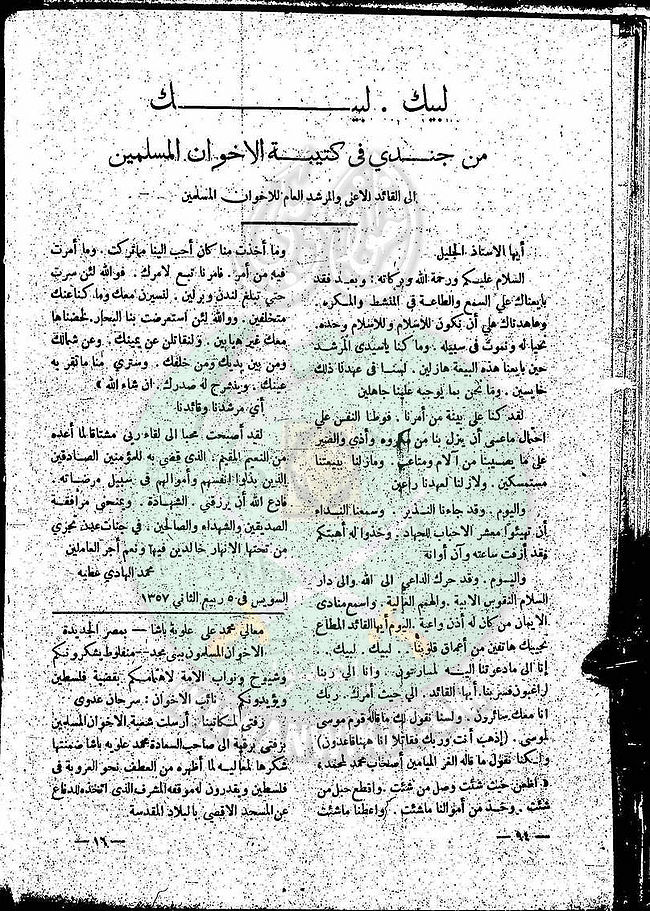 لبيك . لبيـــــــك
من جندي في كتيبة الاخوان المسلمين
الى القائد الاعلى والمرشد العام للاخوان المسلمين
أيها الاستاذ الجليل
السلام عليكم ورحمة الله وبركاته : وبعد فقد
بايعناك على السمع والطاعة في المنشط والمكره .
وعاهدناك على أن نكون للاسلام وللاسلام وحده.
نحيا له ونموت في سبيله . وما كنا ياسيدى المرشد
حين بايعنا هذه البيعة هازلين . لسنا في عهدنا ذلك
خايسين . وما نحن بما يوجبه علينا جاهلين
لقد كنا على بينة من أمرنا . فوطنا النفس على
احتمال ماعسى أن ينزل بنا من مكروه وأذى والصبر
على ما يصيبنا من آلام ومتاعب . ومازلنا ببيعتنا
مستمسكين . ولازلنا لعهدنا راعين
واليوم . وقد جاءنا النذير . وسمعنا النداء
أن تهيئوا معشر الاحباب للجهاد . وخذوا له أهبتكم
فقد أزفت ساعته وآن أوانه
واليوم . وقد حرك الداعي الى الله والى دار
السلام النفوس الابية . والهمم العالية . واسمع منادى
الايمان من كان له أذن واعية . اليوم أيها القائد المطاع
نجيبك هاتفين من أعماق قلوبنا . لبيك . لبيك ..
إنا الى مادعوتنا اليه لمسارعون . وانا الى ربنا
لراغبون فسر بنا. أيها القائد . الى حيث أمرك . ربك
انا معك سائرون . ولسنا نقول لك ماقاله قوم موسى
لموسى . (إذهب أنت وربك فقاتلا انا ههنا قاعدون)
ولكنا نقول ما قاله الغر الميامين أصحاب محمد لمحمد،
« اظعن حيث شئت وصل من شئت . واقطع حبل من
شئت . وخذ من أموالنا ماشئت . واعطنا ماشئت
— ٩٤ —
وما أخذت منا كان أحب الينا مما تركت . وما أمرت
فيه من أمر . فامرنا تبع لامرك . فوالله لئن سرت
حتى تبلغ لندن وبرلين . لنسيرن معك وما كنا عنك
متخلفين . ووالله لئن استعرضت بنا البحار لخضناها
معك غير هيابين . ولنقاتلن عن يمينك . وعن شمالك
ومن بين يديك ومن خلفك . وسترى منا ماتقر به
عينك . وينشرح له صدرك . ان شاء الله »
أي مرشدنا وقائدنا.
لقد أصبحت محبا الى لقاء ربى مشتاقا لما أعده
من النعيم المقيم . الذى قضى به للمؤمنين الصادقين
الذين بذلوا أنفسهم وأموالهم في سبيل مرضاته .
فادع الله أن يرزقني الشهادة . ويمنحني مرافقة
الصديقين والشهداء والصالحين . في جنات عدن تجرى
من تحتها الانهار خالدين فيها ونعم أجر العاملين
محمد الهادي عطيه
السويس في ٥ ربيع الثانى ١٣٥٧
معالى محمد على علوبة باشا — بمصر الجديدة
الاخوان المسلمون ببنى مجد — منفلوط يشكرونكم
وشيوخ ونواب الامة لاهتمامكم بقضية فلسطين
ويؤيدونكم . نائب الاخوان : سرحان عدوى
زفتى لمكاتبنا : أرسلت شعبة الاخوان المسلمين
بزفتى برقية الى صاحب السعادة محمد علوبه باشا ضمنتها
شكرها لمعاليه لما أظهره من العطف نحو العروبة في
فلسطين ويقدرون له موقفه المشرف الذى اتخذه للدفاع
عن المسجد الاقصى بالبلاد المقدسة.
— ١٦ —